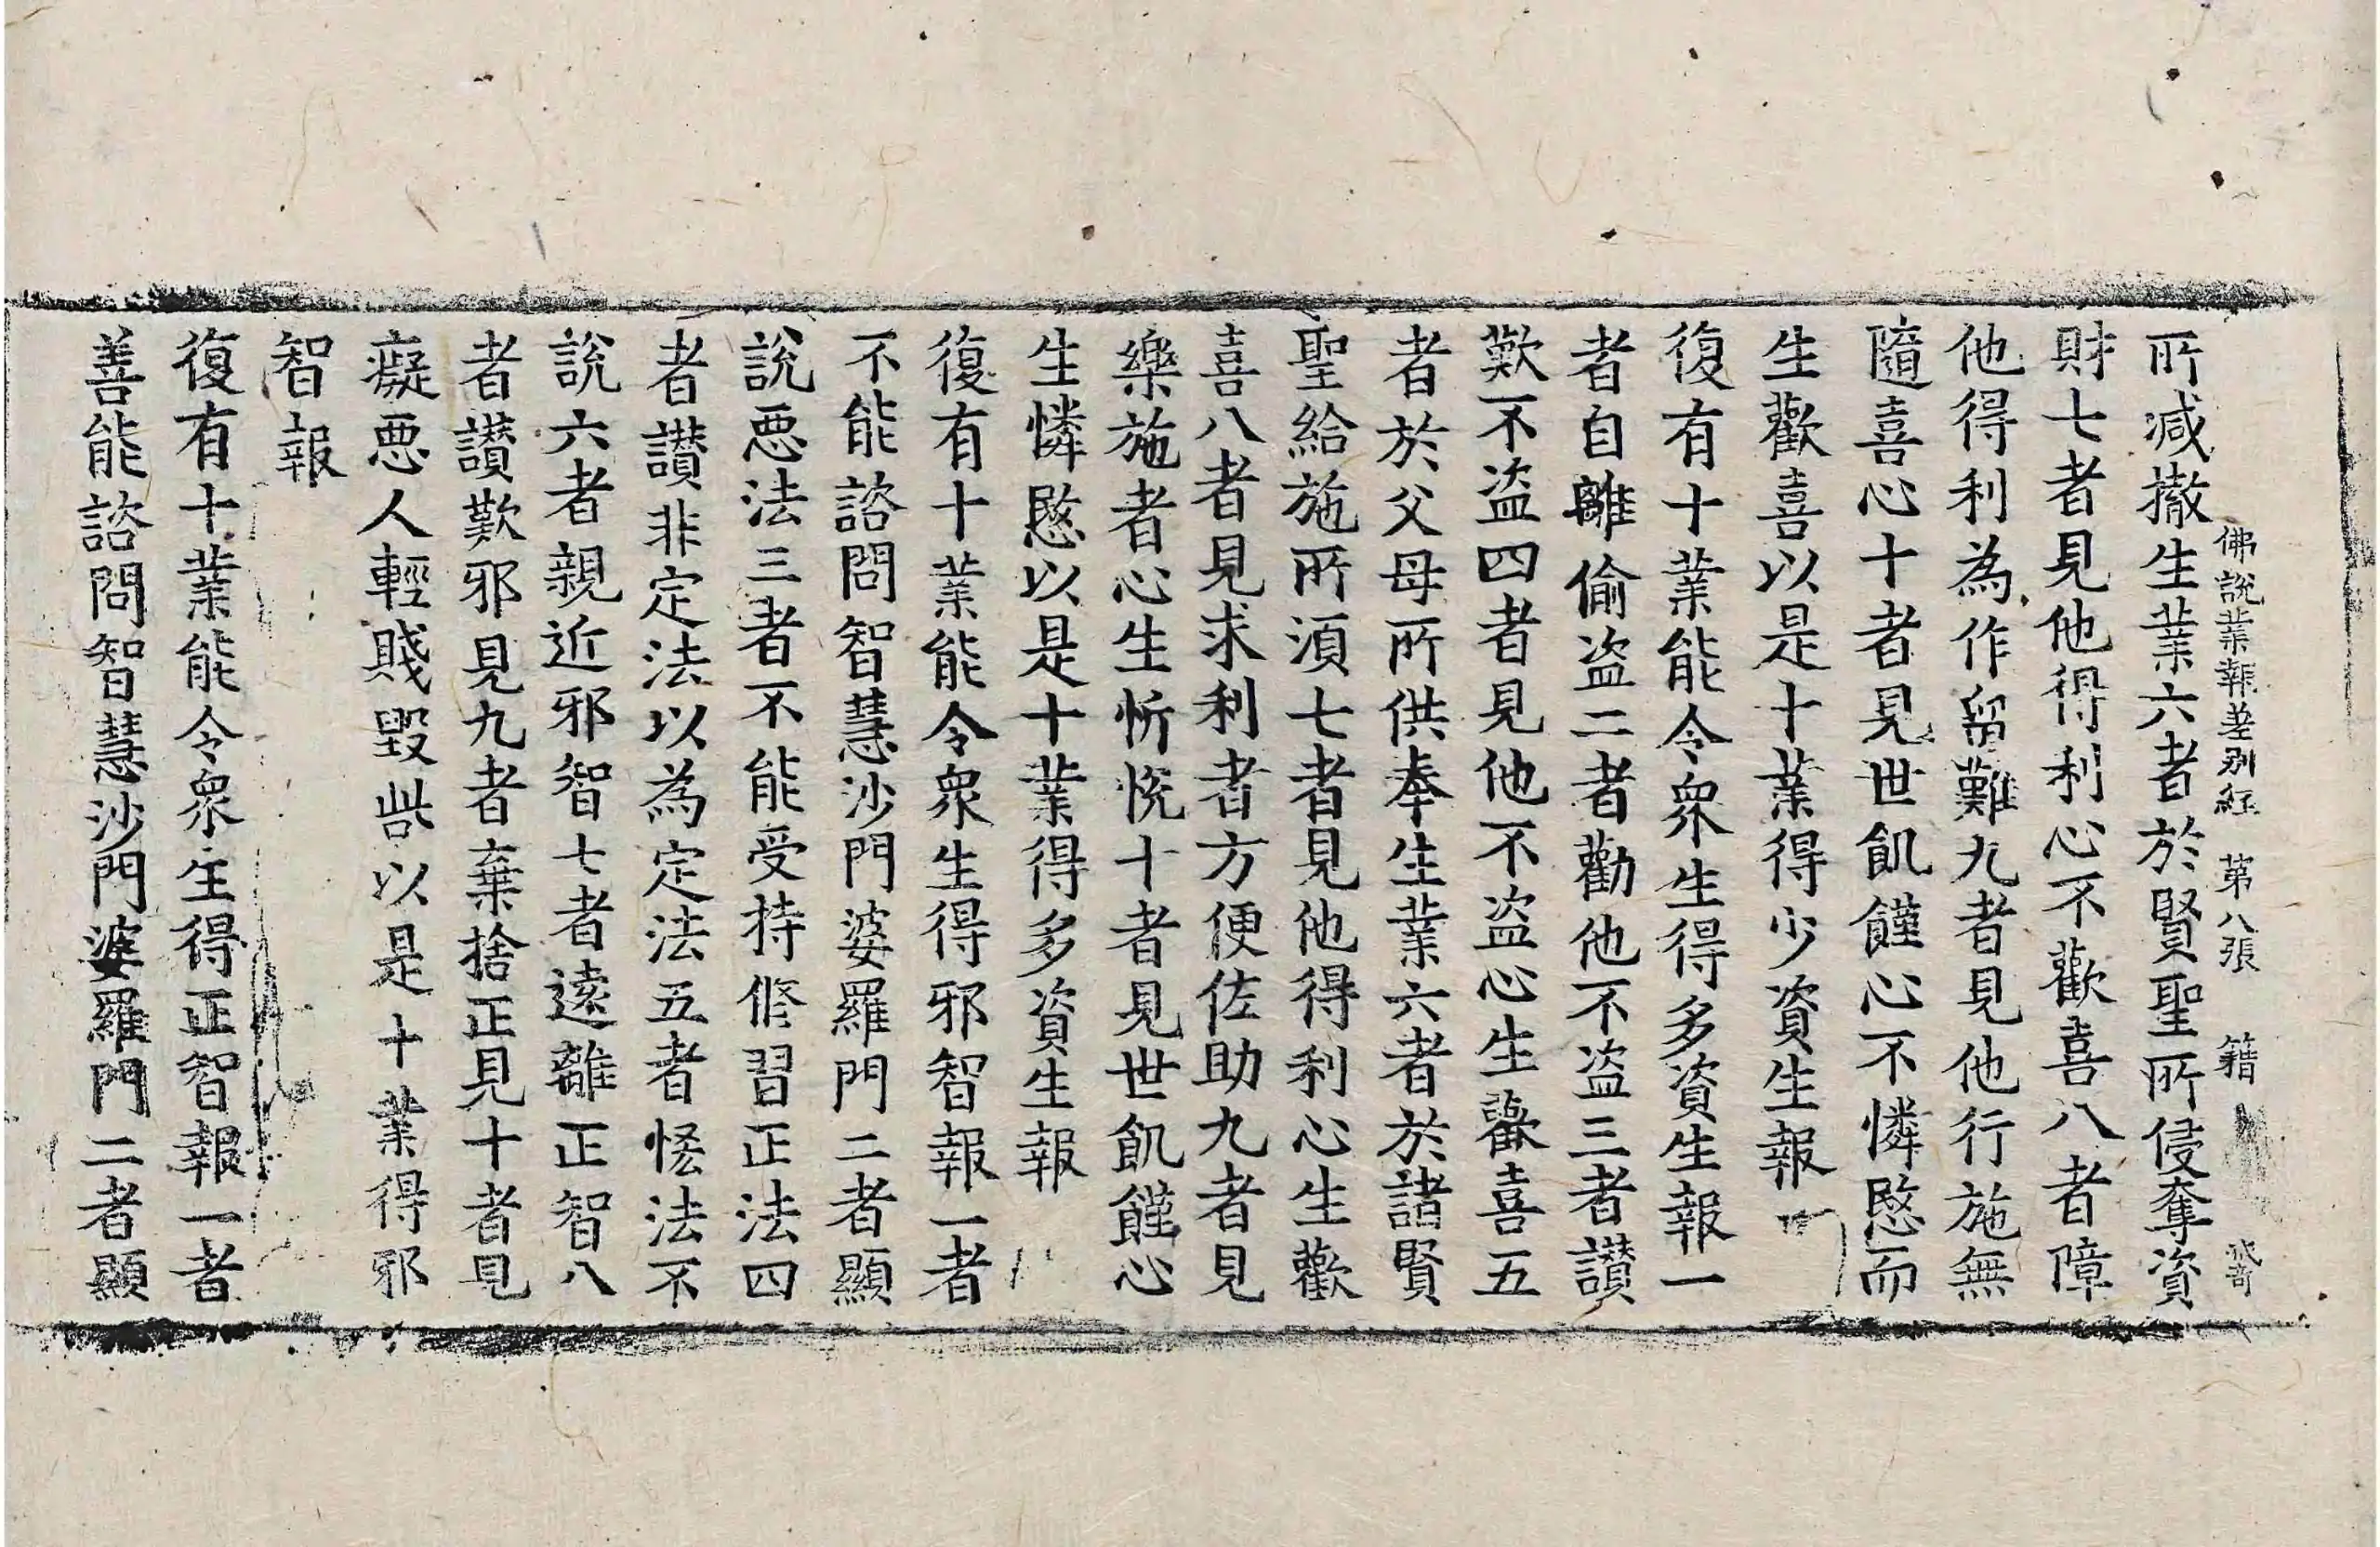 佛說業報差別經 第八張 籍
所減撤生業六者於賢聖所侵奪資
財七者見他得利心不歡喜八者障
他得利為作留難九者見他行施無
隨喜心十者見世飢饉心不憐愍而
生歡喜以是十業得少資生報
復有十業能令衆生得多資生報一
者自離偷盜二者勸他不盜三者讃
歎不盜四者見他不盜心生歡喜五
者於父母所供奉生業六者於諸賢
聖給施所湏七者見他得利心生歡
喜八者見求利者方便佐助九者見
樂施者心生忻悅十者見世飢饉心
生憐愍以是十業得多資生報
復有十業能令衆生得邪智報一者
不能諮問智慧沙門婆羅門二者顯
說惡法三者不能受持修習正法四
者讃非定法以為定法五者恡法不
說六者親近邪智七者遠離正智八
者讃歎邪見九者棄捨正見十者見
癡惡人輕賤毀呰以是十業得邪
智報
復有十業能令衆生得正智報一者
善能諮問智慧沙門婆羅門二者顯